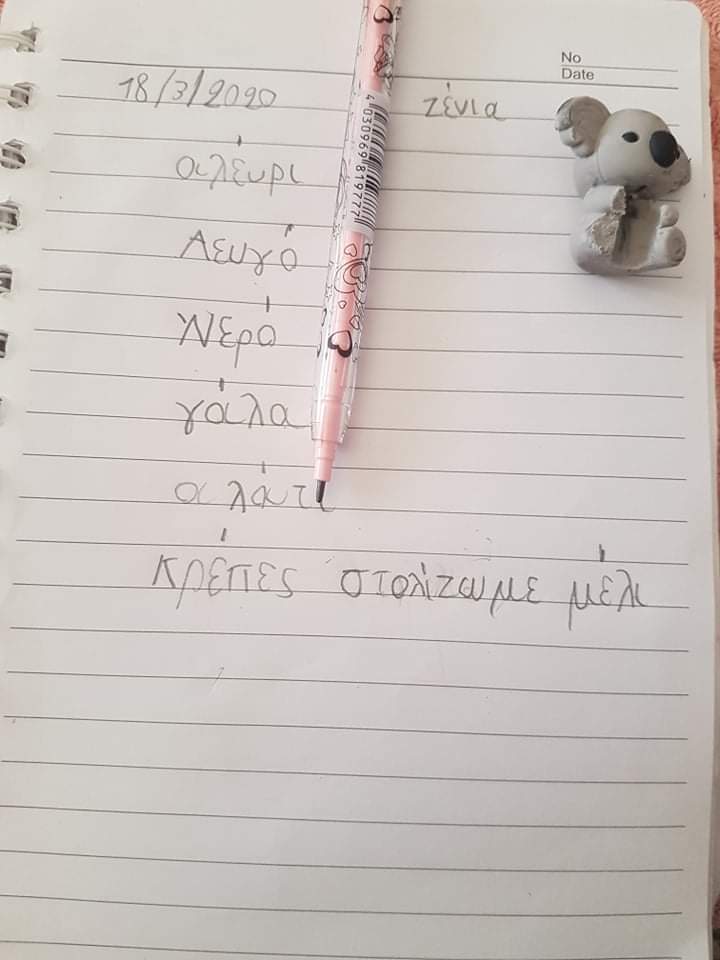 No
Date
18/3/2020 τζένια
αλέυρι
Λευγό
Νερό
γάλα
αλάυτι
κρέπες στολίζωυμε μέλι
4 030969 819777